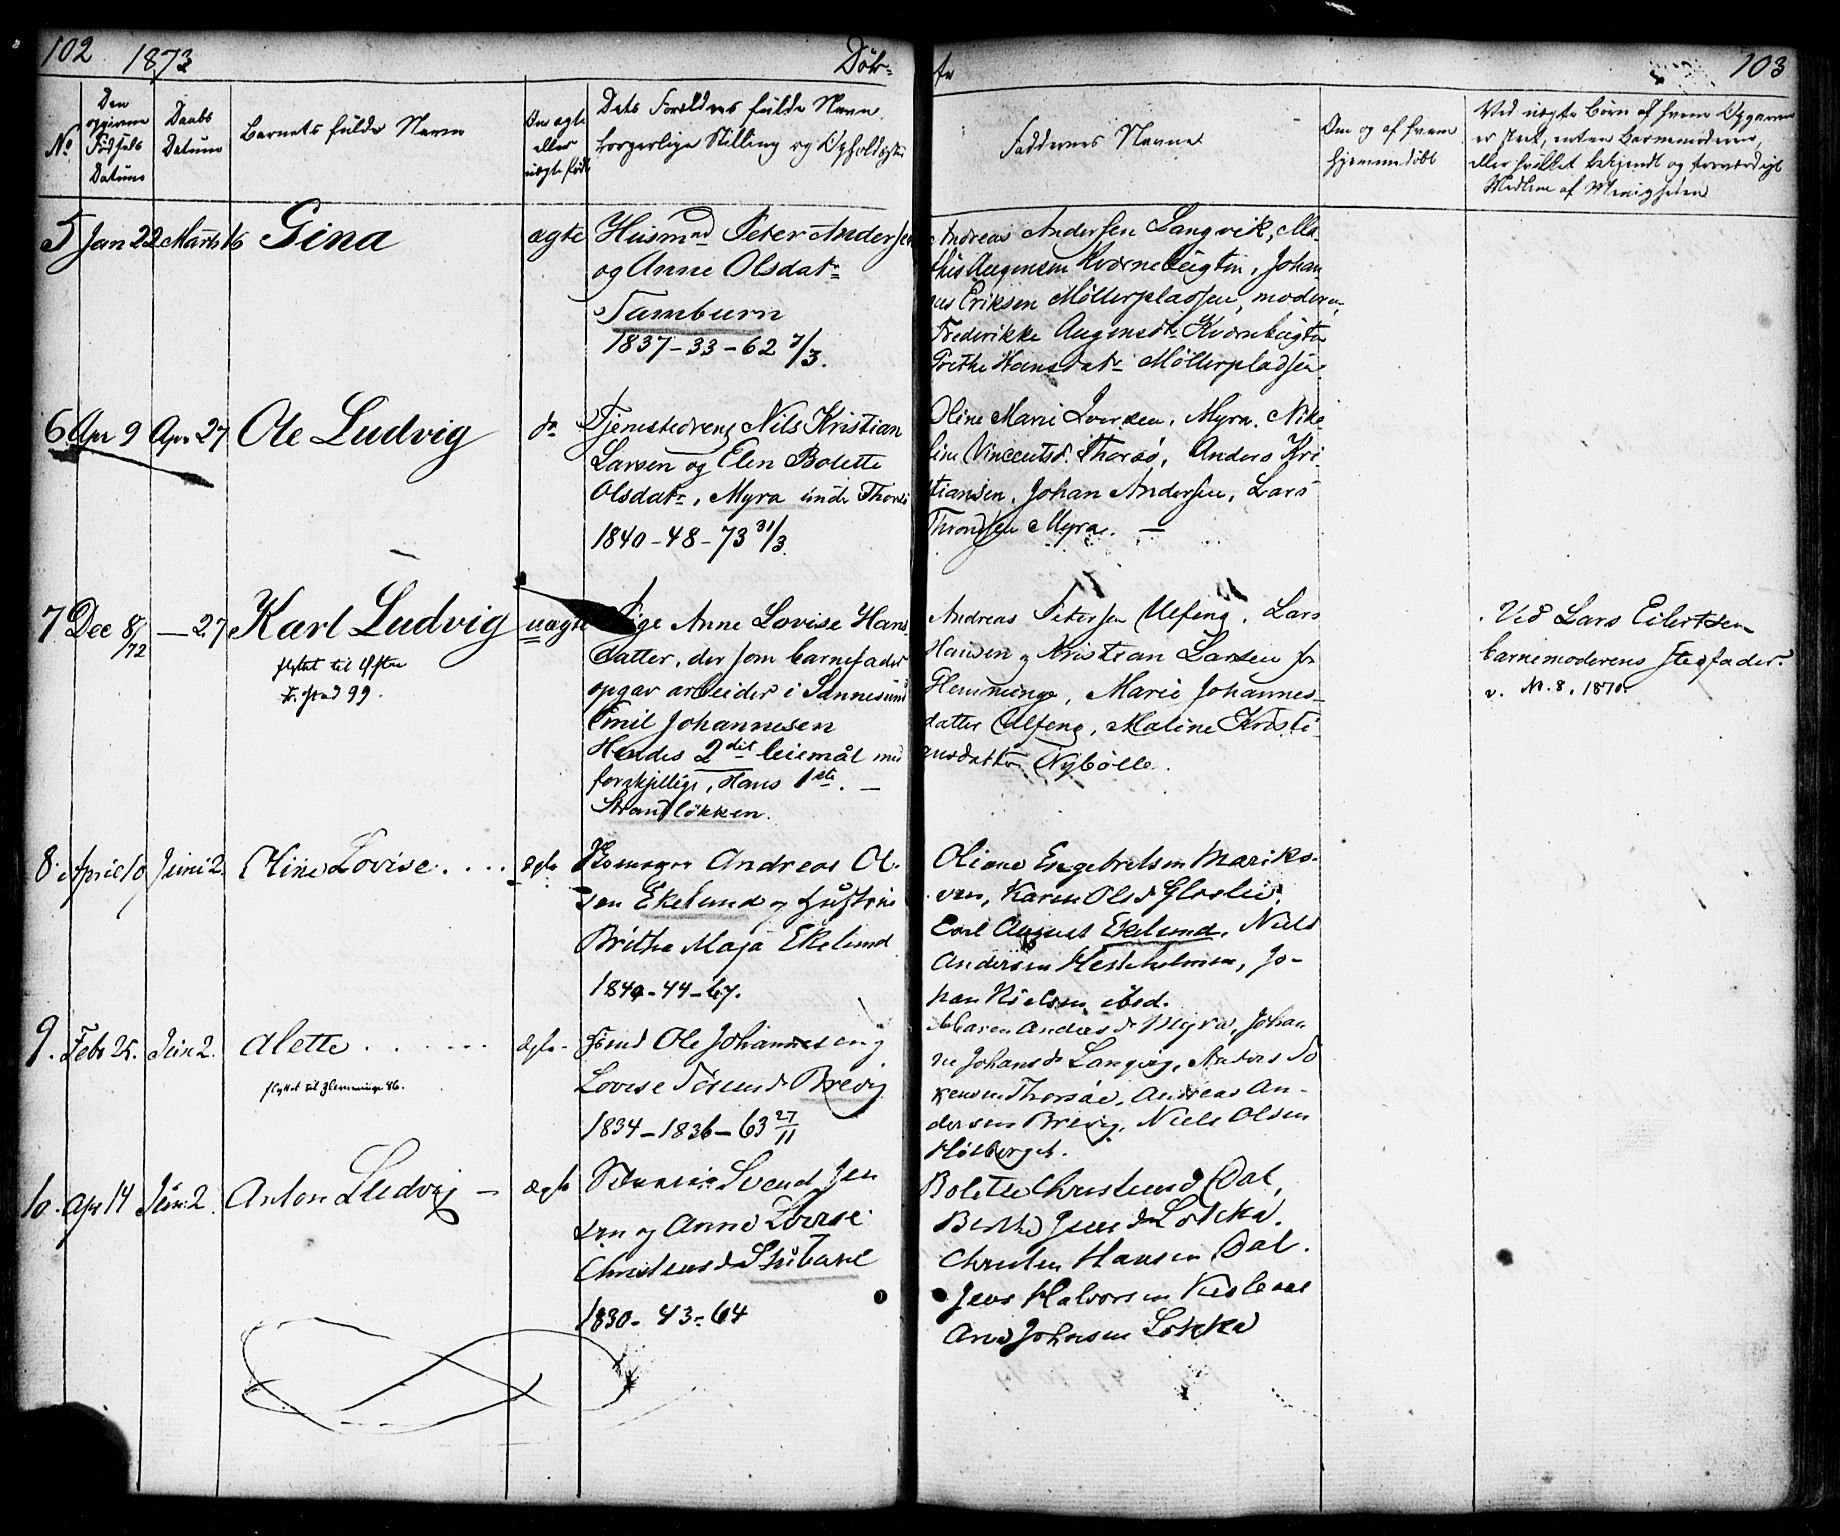 102 1873 Døb-
te 103
No
Den
opgivne
Fødsels
Datum
Daabs
Datum
Barnets fulde Navn
Om ægte
eller
uægte født
Dets Forældres fulde Navn
borgerlige Stilling og Opholdssted
Faddernes Navne
Om og af hvem
hjemmedøbt
Ved uægte Børn af hvem Opgaven
er skeet, enten Barnemoderen,
eller hvilket bekjendt og troværdigt
Medlem af Menigheden
5 Jan 22 Marts 16 Gina ægte
Husmnd Peter Andersen
og Anne Olsdatr
Tamburn
1837-33-62 7/3.
Andreas Andersen Langvik, Ma-
this Augensen Kværnebugten, Johan-
nes Eriksen Møllerpladsen, moderen,
Frederikke Augensdtr Kværnbugten
Grethe Hansdatr Møllerpladsen.
6 Apr 9 Apr 27 Ole Ludvig do
Tjenestedreng Nils Kristian
Larsen og Elen Bolette
Olsdatr, Myra under Thorsø
1840-48-73 31/3.
Oline Marie Iversen, Myra. Niko-
line Vincentsd. Thorsø, Anders Kri-
stiansen, Johan Andersen, Lars
Throndsen Myra. —
7 Dec 8/72 — 27 Karl Ludvig uægte
flyttet til
99.
Pige Anne Lovise Hans-
datter, der som barnefader
opgav arbeider i Sannesund
Emil Johannesen
Hendes 2det leiemål med
forskjellige, Hans 1ste. —
Strandløkken.
Andreas Petersen Ulfeng. Lars
Hansen og Kristian Larsen fr
Hemminge, Marie Johannes-
datter Ulfeng, Maline Kristi-
ansdatter Nybølle.
Ved Lars Eilertsen
barnemoderens stedfader.
v. No. 8. 1870.
8. April 10 Juni 2. Lovise .... ægte
Andreas Ol-
sen Ekelund og Hustru
Britha Maja Ekelund
1840-44-67.
Oliane Engebretsen Mariko-
ven, Karen Olsd
Carl August Ekelund, Niels
Andersen Hesteholmen, Jo-
han Nielsen ibed.
9. Febr 25. Jun 2. Alette ...... ægte-
flyttet til Hemminge 86.
Ole Johannesen og
Lovise Brevig
1834-1836-63 27/11
Maren Andersdr Myra, Johan-
ne Johansdr Langvig, Anders To-
Thorsøe, Andreas An-
dersen Brevig, Niels Olsen
Holberget.
10. Apr 14 Jun. 2. Anton Ludvig — Ægte
Svend Jen-
sen og Anne Lovise
Christensdr Stubane
1830-43-64
Bolette Christensd Dal,
Berthe Jensdr Løkka.
Christen Hansen Dal.
Jens Halvorsen
Johnsen Løkka